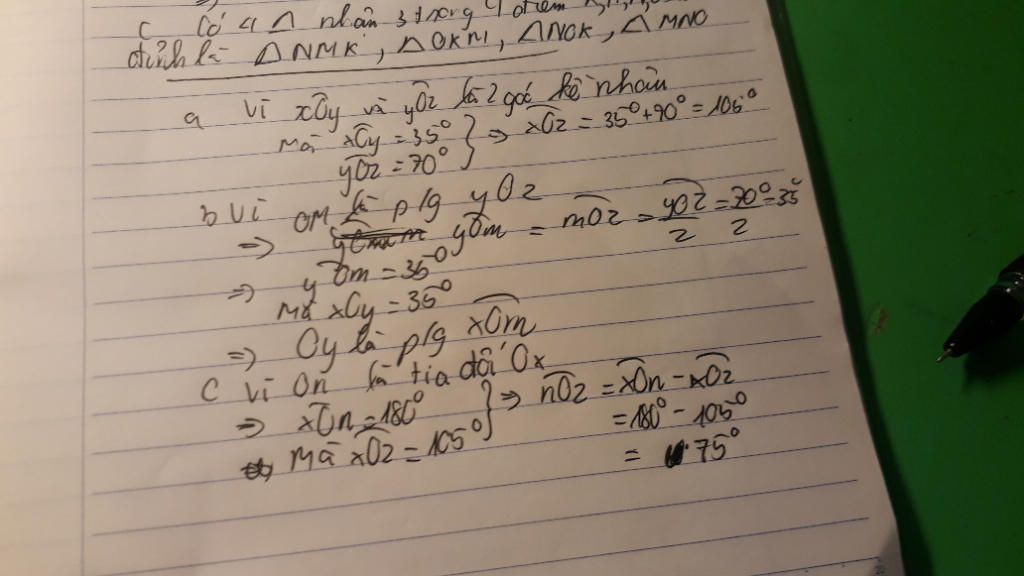 C Có 4 Δ nhận 3 trong 4 điểm
đỉnh là ΔNMK, ΔOKM, ΔNOK, ΔMNO
a Vì xOy và yOz là 2 góc kề nhau
Mà xOy = 35° } ⇒ xOz = 35° + 90° = 105°
yOz = 70°
b Vì OM là p/g yOz
⇒ yOm = mOz = yOz/2 = 70°/2 = 35°
⇒ yOm = 35°
Mà xOy = 35°
⇒ Oy là p/g xOm
C Vì On là tia đối Ox
⇒ xOn = 180° } ⇒ nOz = xOn - xOz
Mà xOz = 105° = 180° - 105°
= 75°